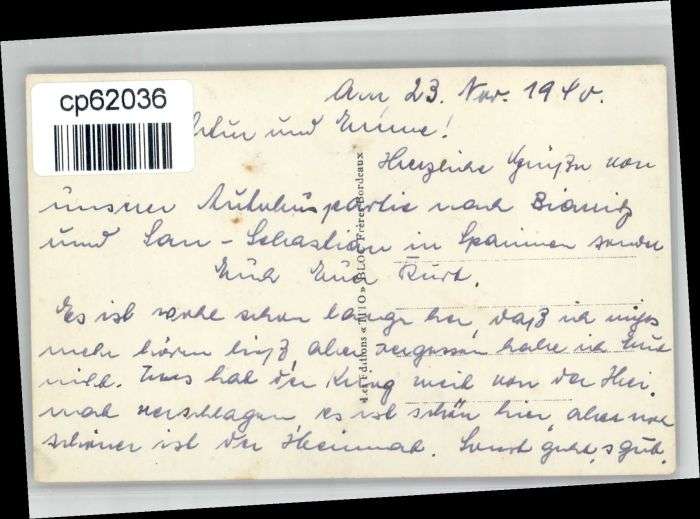 cp62036
Am 23. Nov. 1940.
und Emmi!
Herzliche Grüße von
unsrer Autobuspartie nach Biarritz
und San-Sebastian in Spanien sendet
Euch Euer Kurt.
Es ist wohl schon lange her, daß ich nichts
mehr hören ließ, aber vergessen habe ich Euch
nicht. Uns hat der Krieg weit von der Hei-
mat verschlagen es ist schön hier, aber noch
schöner ist der Heimat. Sonst geht's gut.
4 et Editions «THO» BLOC Frères Bordeaux